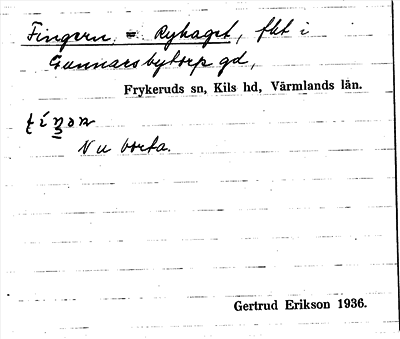 Fingern, = Ryhaget, fht i
Gunnarsbytorp gd,
Frykeruds sn, Kils hd, Värmlands län.
Nu borta.
Gertrud Erikson 1936.